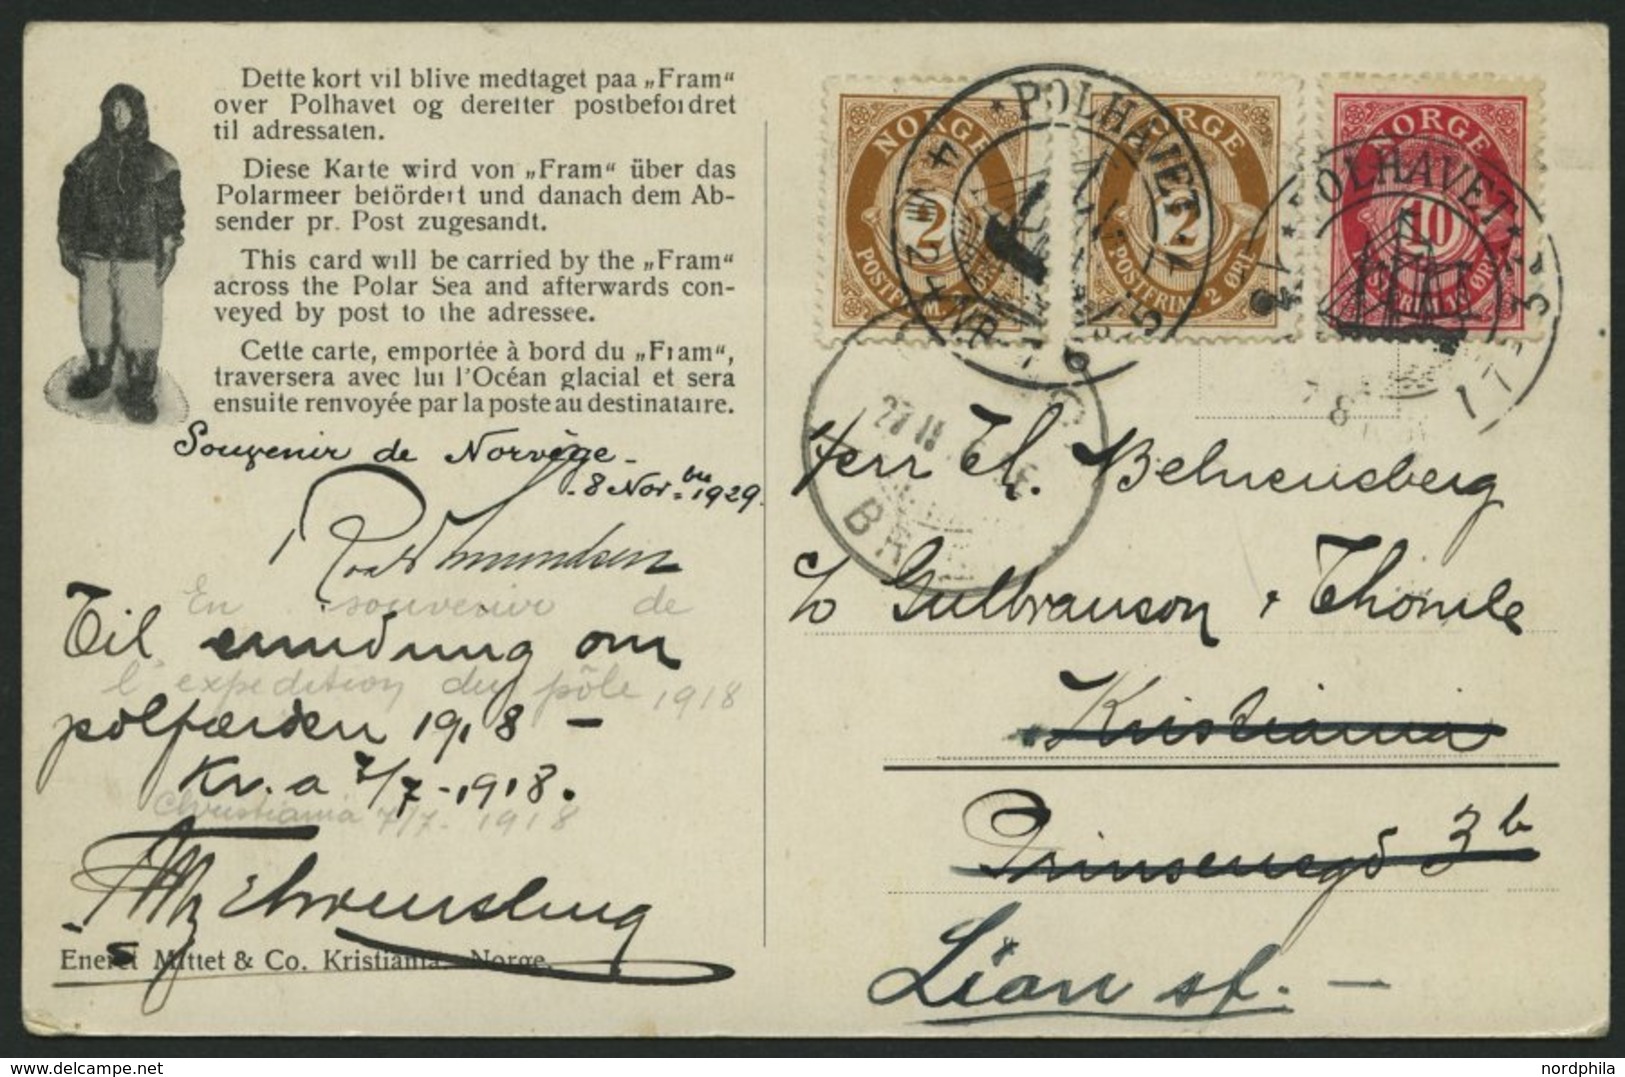 Dette kort vil blive medtaget paa „Fram“
over Polhavet og derefter postbefordret
til adressaten.
Diese Karte wird von „Fram“ über das
Polarmeer befördert und danach dem Ab-
sender pr. Post zugesandt.
This card will be carried by the „Fram“
across the Polar Sea and afterwards con-
veyed by post to the adressee.
Cette carte, emportée à bord du „Fram“,
traversera avec lui l'Océan glacial et sera
ensuite renvoyée par la poste au destinataire.
Souvenir de Norvège -
8 Nov.bre 1929.
Roald Amundsen
En souvenir de
Til erindring om
l'expedition du pôle 1918
polfærden 1918 -
Kr.a 7/7 - 1918.
Christiania 7/7 - 1918
Eneret Mittet & Co. Kristiania - Norge.
NORGE
2
POSTFRIM.
NORGE
2
POSTFRIM. 2 ØRE
NORGE
10
POSTFRIM. 10 ØRE
POLHAVET
POLHAVET
27 II
Herr Th. Behrensberg
c/o Gulbranson & Thomle
Kristiania
Prinsensgd 3b
Lian st. -
nordphila